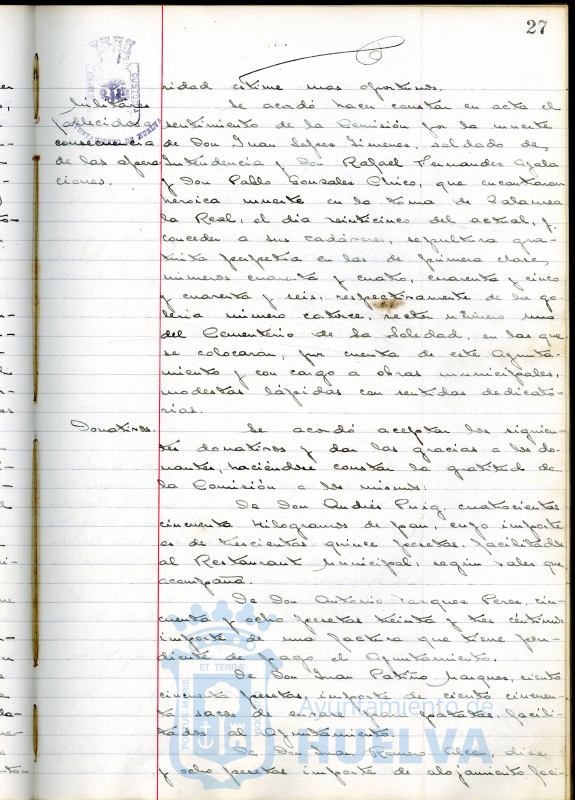 27
ridad estime mas oportunos.
Militares
fallecidos a
consecuencia
de las opera
ciones.
Se acordó hacer constar en acta el
sentimiento de la Comisión por la muerte
de Don Juan Lopez Jimenez, soldado de
Intendencia y Don Rafael Fernandez Ayala
y Don Pablo Gonzalez Chico, que encontraron
heroica muerte en la toma de Zalamea
la Real, el dia veinticinco del actual, y
conceder a sus cadáveres, sepultura gra-
tuita perpetua en las de primera clase,
números cuarenta y cuatro, cuarenta y cinco
y cuarenta y seis, respectivamente de la ga-
leria número catorce, sector número uno
del Cementerio de la Soledad, en las que
se colocarán, por cuenta de este Ayunta-
miento y con cargo a obras municipales,
modestas lápidas con sentidas dedicato-
rias.
Donativos.
Se acordó aceptar los siguien-
tes donativos y dar las gracias a los do-
nantes, haciéndose constar la gratitud de
la Comisión a los mismos:
De Don Andrés Puig, cuatrocientos
cincuenta kilogramos de pan, cuyo importe
es de trescientas quince pesetas, facilitados
al Restaurant Municipal, según vales que
acompaña.
De Don Antonio Vazquez Perez, cin-
cuenta y ocho pesetas treinta y tres céntimos
importe de una factura que tiene pen-
diente de pago el Ayuntamiento.
De Don Juan Patiño Marquez, ciento
cincuenta pesetas, importe de ciento cincuen-
ta sacos de envase para patatas, facili-
tados al Ayuntamiento.
De Don Juan Romero, diez
y ocho pesetas importe de alojamiento faci-
ET TERRÆ
PORTUS MARIS
Ayuntamiento de
HUELVA